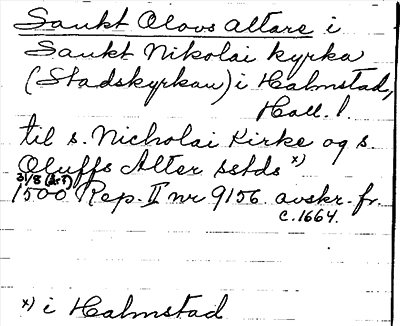 Sankt Olovs altare i
Sankt Nikolai kyrka
(Stadskyrkan) i Halmstad,
Hall. l.
til s. Nicholai Kirke og s.
Oluffs Alter sstds x)
31/8 (år?)
1500 Rep. II nr 9156 avskr. fr.
c. 1664.
x) i Halmstad